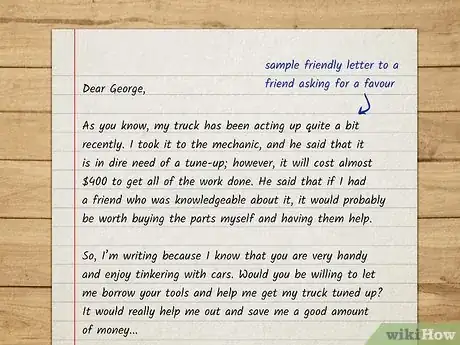 sample friendly letter to a
friend asking for a favour
Dear George,
As you know, my truck has been acting up quite a bit
recently. I took it to the mechanic, and he said that it
is in dire need of a tune-up; however, it will cost almost
$400 to get all of the work done. He said that if I had
a friend who was knowledgeable about it, it would probably
be worth buying the parts myself and having them help.
So, I'm writing because I know that you are very handy
and enjoy tinkering with cars. Would you be willing to let
me borrow your tools and help me get my truck tuned up?
It would really help me out and save me a good amount
of money...
wikiHow